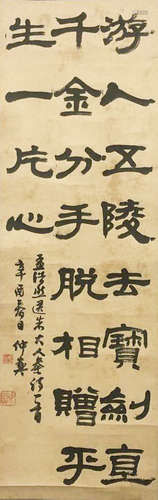 游人五陵去寶劍直
千金分手脫相贈平
生一片心
孟浩然送朱大入秦詩一首
辛酉春日 仲英